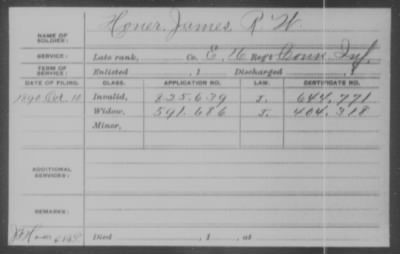 NAME OF SOLDIER: Honer, James R W.
SERVICE: Late rank, Co. E, 16 Reg't Conn Inf.
TERM OF SERVICE: Enlisted , 1 Discharged , 1
DATE OF FILING. CLASS. APPLICATION NO. LAW. CERTIFICATE NO.
1890 Oct. 10 Invalid, 825.639 J. 644,771
Widow, 591.686 J. 404,318
Minor,
ADDITIONAL SERVICES:
REMARKS:
Died , 1 , at